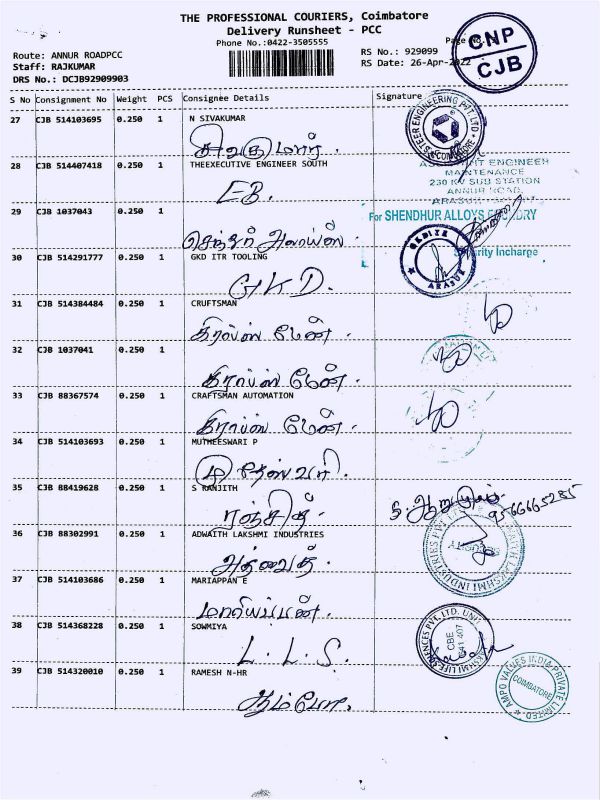 THE PROFESSIONAL COURIERS, Coimbatore
Delivery Runsheet - PCC
Phone No.:0422-3505555
Route: ANNUR ROADPCC
Staff: RAJKUMAR
DRS No.: DCJB92909903
RS No.: 929099
RS Date: 26-Apr-2022
CNP
CJB
S No Consignment No Weight PCS Consignee Details Signature
27 CJB 514103695 0.250 1 N SIVAKUMAR
சிவகுமார்.
28 CJB 514407418 0.250 1 THEEXECUTIVE ENGINEER SOUTH
EB.
ASSISTANT ENGINEER
MAINTENANCE
230 KV SUB STATION
ANNUR ROAD,
29 CJB 1037043 0.250 1
For SHENDHUR ALLOYS FOUNDRY
Security Incharge
30 CJB 514291777 0.250 1 GKD ITR TOOLING
GKD.
ARASUR
31 CJB 514384484 0.250 1 CRUFTSMAN
கிராப்ஸ் மேன்.
32 CJB 1037041 0.250 1
கிராப்ஸ் மேன்.
33 CJB 88367574 0.250 1 CRAFTSMAN AUTOMATION
கிராப்ஸ் மேன்.
34 CJB 514103693 0.250 1 MUTHEESWARI P
35 CJB 88419628 0.250 1 S RANJITH
ரஞ்சித்.
9566665285
36 CJB 88302991 0.250 1 ADWAITH LAKSHMI INDUSTRIES
அத்வைத்.
37 CJB 514103686 0.250 1 MARIAPPAN E
மாரியப்பன்.
38 CJB 514368228 0.250 1 SOWMIYA
L.L.S.
CBE
641 407
39 CJB 514320010 0.250 1 RAMESH N-HR
ஆம்போ.
AMPO VALVES INDIA PRIVATE LIMITED
COIMBATORE